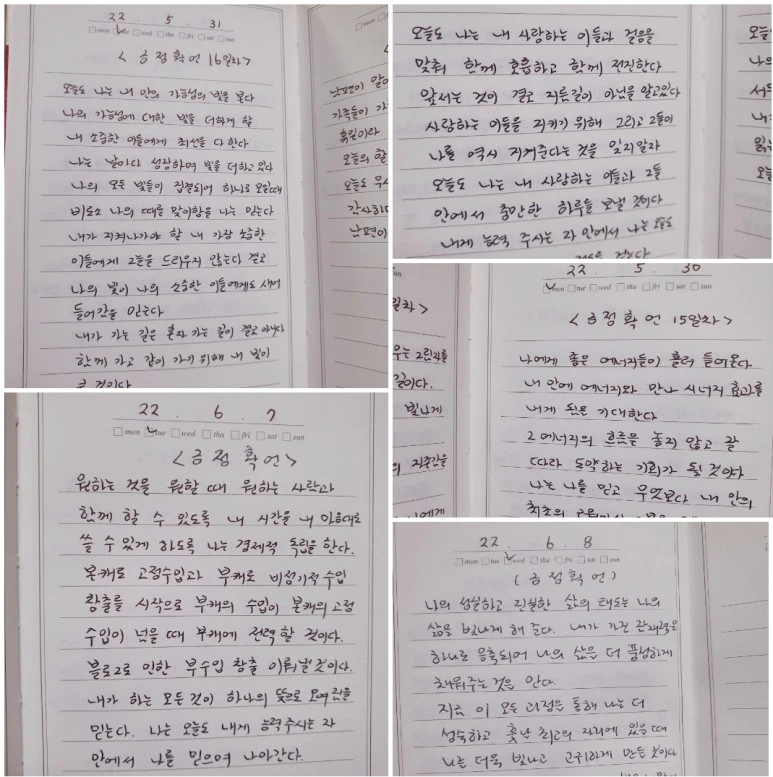 22 . 5 . 31
mon tue wed thu fri sat sun
< 긍정확언 16일차>
오늘도 나는 내 안의 가능성의 빛을 본다
나의 가능성에 대한 빛을 더하게 할
내 소중한 이들에게 최선을 다 한다
나는 날마다 성장하며 빛을 더하고 있다
나의 모든 빛들이 집결되어 하나로 모일때
비로소 나의 때를 맞이함을 나는 믿는다
내가 지켜나가야 할 내 가장 소중한
이들에게 그늘을 드리우지 않는다 결코
나의 빛이 나의 소중한 이들에게도 새어
들어감을 믿는다
내가 가는 길은 혼자 가는 길이 결코 아니다
함께 가고 같이 가기 위해 내 빛이
큰 것이다
남편이
가족들이
휴일이라
오늘의
오늘도
감사하다
남편이
오늘도 나는 내 사랑하는 이들과 걸음을
맞춰 함께 호흡하고 함께 전진한다
앞서는 것이 결코 지름길이 아님을 알고있다
사랑하는 이들을 지키기 위해 그리고 그들이
나를 역시 지켜준다는 것을 잊지말라
오늘도 나는 내 사랑하는 이들과 그들
안에서 충만한 하루를 보낼 것이다
내게 능력 주시는 자 안에서 나는 오늘도
22 . 5 . 30
mon tue wed thu fri sat sun
< 긍정확언 15일차>
나에게 좋은 에너지들이 흘러 들어온다
내 안에 에너지와 만나 시너지 효과를
내게 됨을 기대한다
그 에너지의 흐름을 놓지 않고 잘
따라 도약하는 기회가 될 것이다
나는 나를 믿고 무엇보다 내 안의
길이다.
빛나게
22 6 7
mon tue wed thu fri sat sun
<긍정확언>
원하는 것을 원할 때 원하는 사람과
함께 할 수 있도록 내 시간을 내 마음대로
쓸 수 있게 하도록 나는 경제적 독립을 한다.
본캐로 고정수입과 부캐로 비정기적 수입
창출을 시작으로 부캐의 수입이 본캐의 고정
수입이 넘을 때 부캐에 전력할 것이다.
블로그로 인한 부수입 창출 이뤄낼 것이다.
내가 하는 모든것이 하나의 뜻으로 모여짐을
믿는다. 나는 오늘도 내게 능력주시는 자
안에서 나를 믿으며 나아간다.
22 . 6 . 8
mon tue wed thu fri sat sun
( 긍정확언 )
나의 성실하고 진실한 삶의 태도는 나의
삶을 빛나게 해 준다. 내가 가진 잠재력은
하나로 응축되어 나의 삶을 더 풍성하게
채워주는 것을 안다.
지금 이 모든 과정을 통해 나는 더
성숙하고 훗날 최고의 자리에 있을 때
나를 더욱 빛나고 고귀하게 만들 것이다